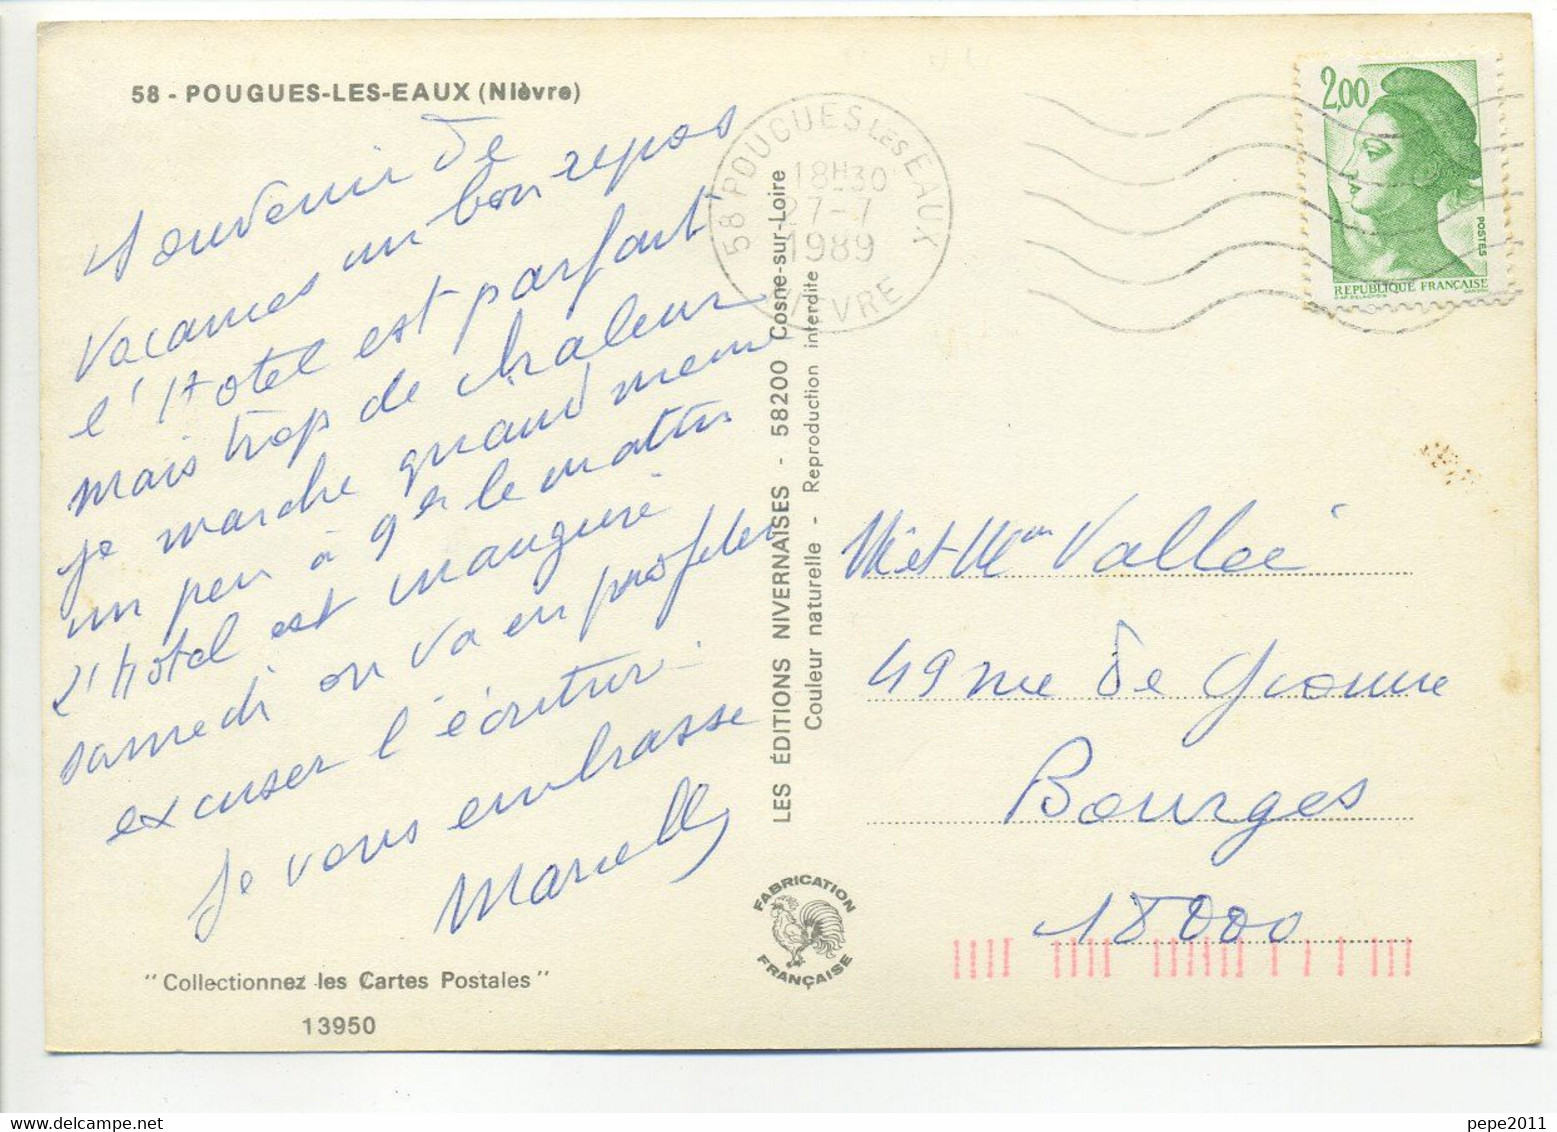 58 - POUGUES-LES-EAUX (Nièvre)
Souvenir de
Vacances un bon repos
l'Hotel est parfait
mais trop de chaleur
je marche quand meme
un peu à 9h le matin
L'hôtel est inauguré
samedi on va en profiter
excuser l'écriture
Je vous embrasse
Marcelle
"Collectionnez les Cartes Postales"
13950
LES ÉDITIONS NIVERNAISES - 58200 Cosne-sur-Loire
Couleur naturelle - Reproduction interdite
FABRICATION
FRANÇAISE
58 POUGUES LES EAUX
18H30
27-7
1989
NIEVRE
2,00
POSTES
REPUBLIQUE FRANÇAISE
Mr et Mme Vallée
49 rue de
Bourges
18000
pepe2011